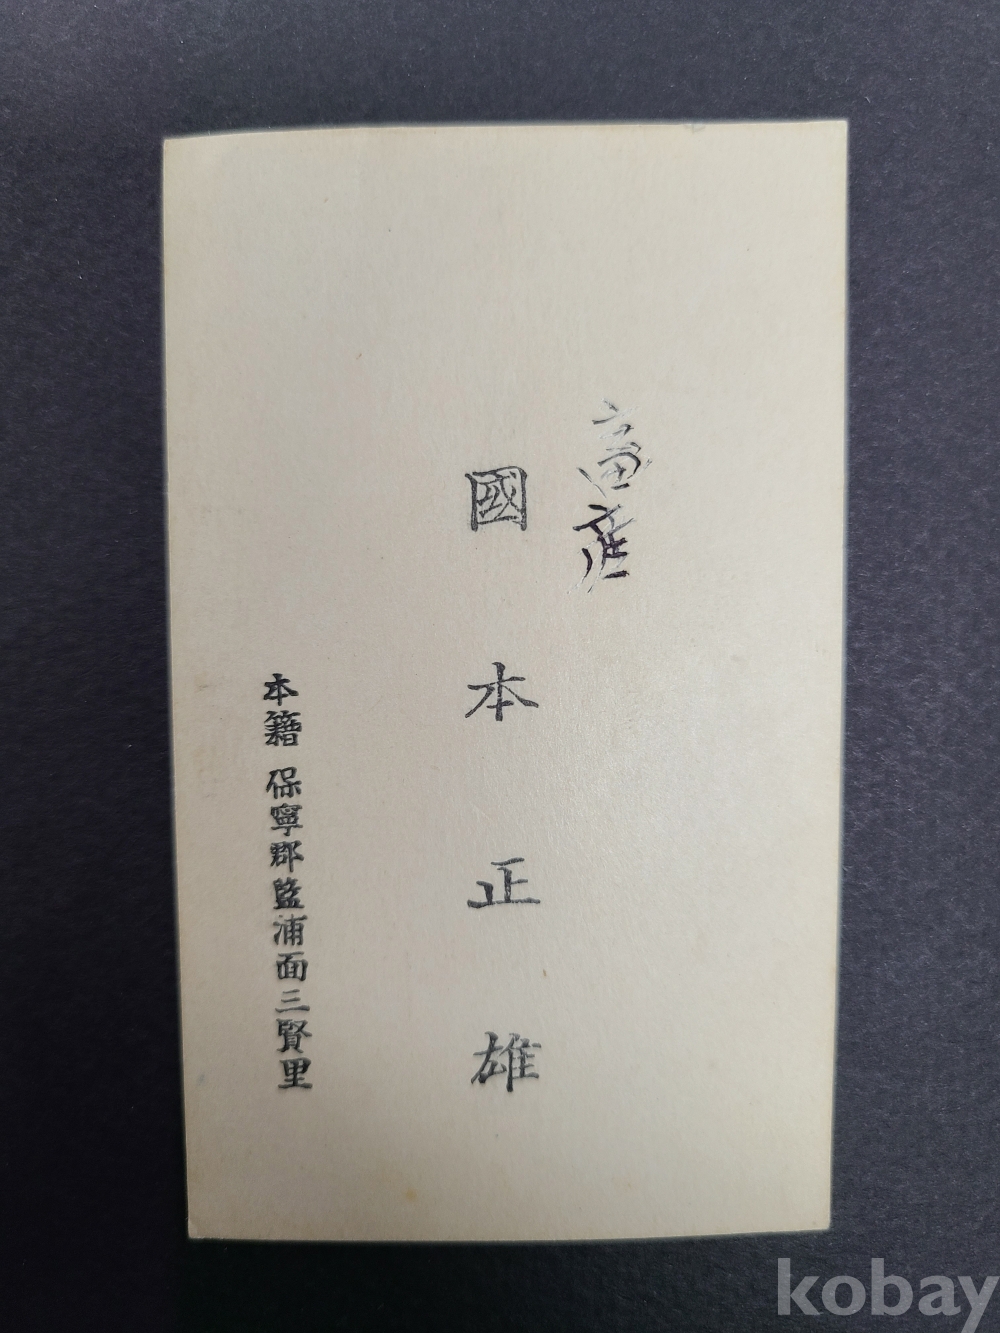 畜産
國本正雄
本籍 保寧郡藍浦面三賢里
kobay